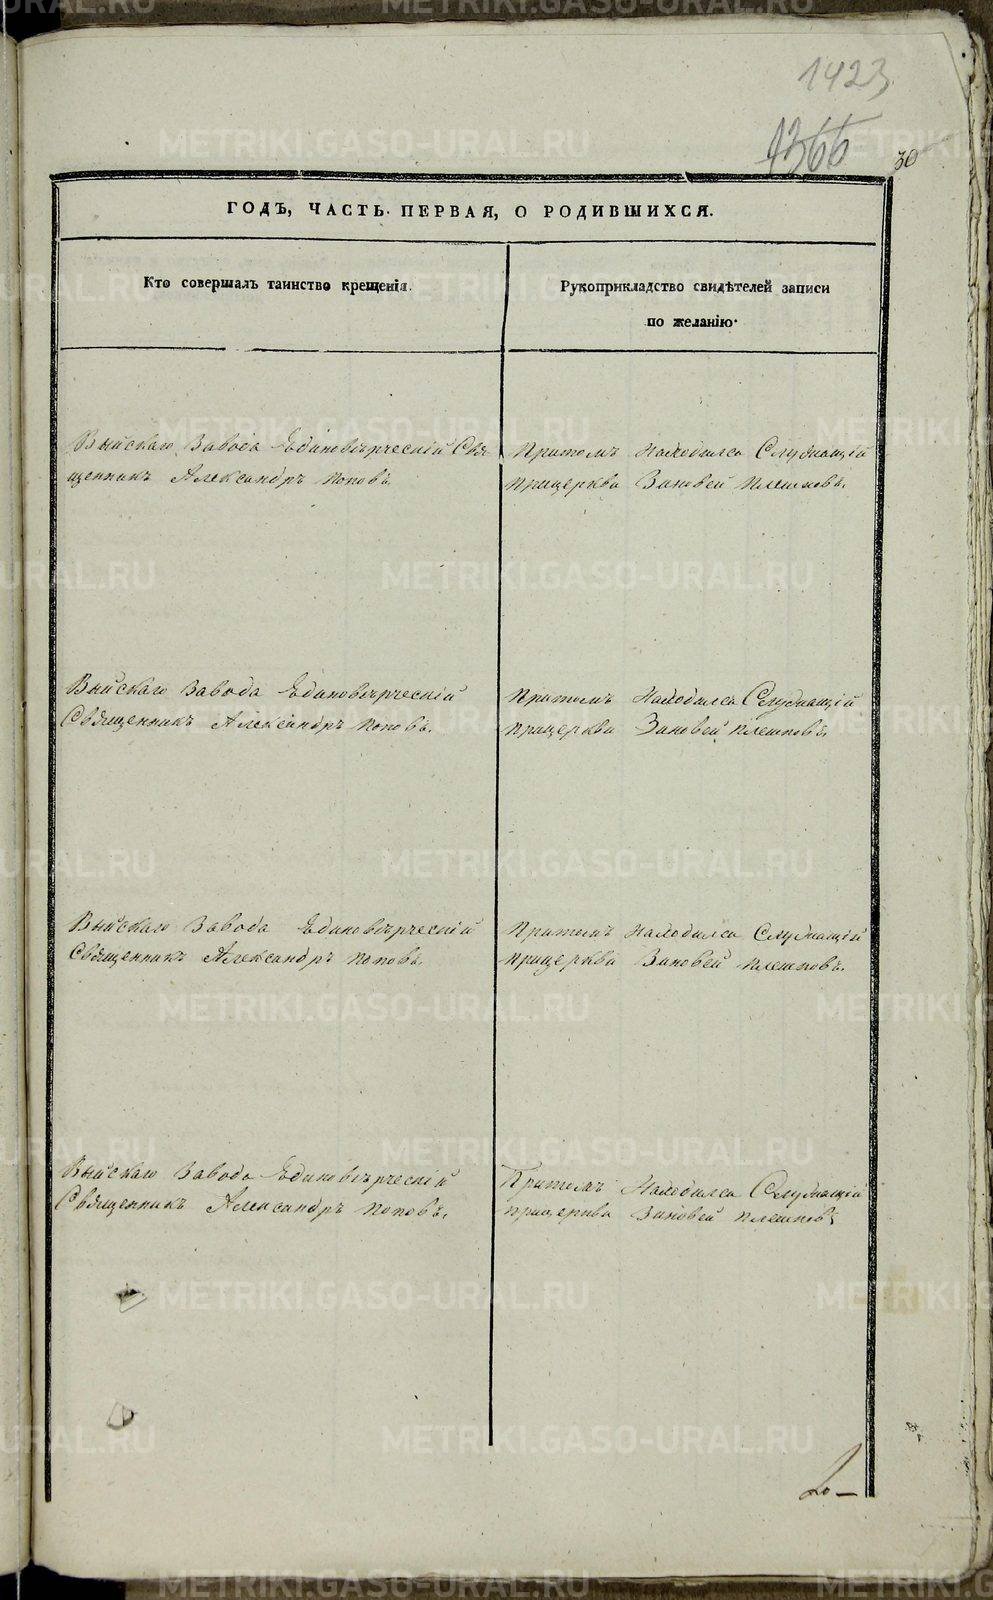 1423
1366
30
ГОДЪ, ЧАСТЬ ПЕРВАЯ, О РОДИВШИХСЯ.
Кто совершалъ таинство крещенія.
Рукоприкладство свидѣтелей записи
по желанію.
Выйскаго Завода Единовѣрческій Свя-
щенникъ Александръ Поповъ.
Притомъ Находился Служащій
прицеркви Зиновей Плешковъ.
Выйскаго Завода Единовѣрческій
Священникъ Александръ Поповъ.
Притомъ Находился Служащій
прицеркви Зиновей Плешковъ.
Выйскаго Завода Единовѣрческій
Священникъ Александръ Поповъ.
Притомъ Находился Служащій
прицеркви Зиновей Плешковъ.
Выйскаго Завода Единовѣрческій
Священникъ Александръ Поповъ.
Притомъ Находился Служащій
прицеркви Зиновей Плешковъ
METRIKI.GASO-URAL.RU